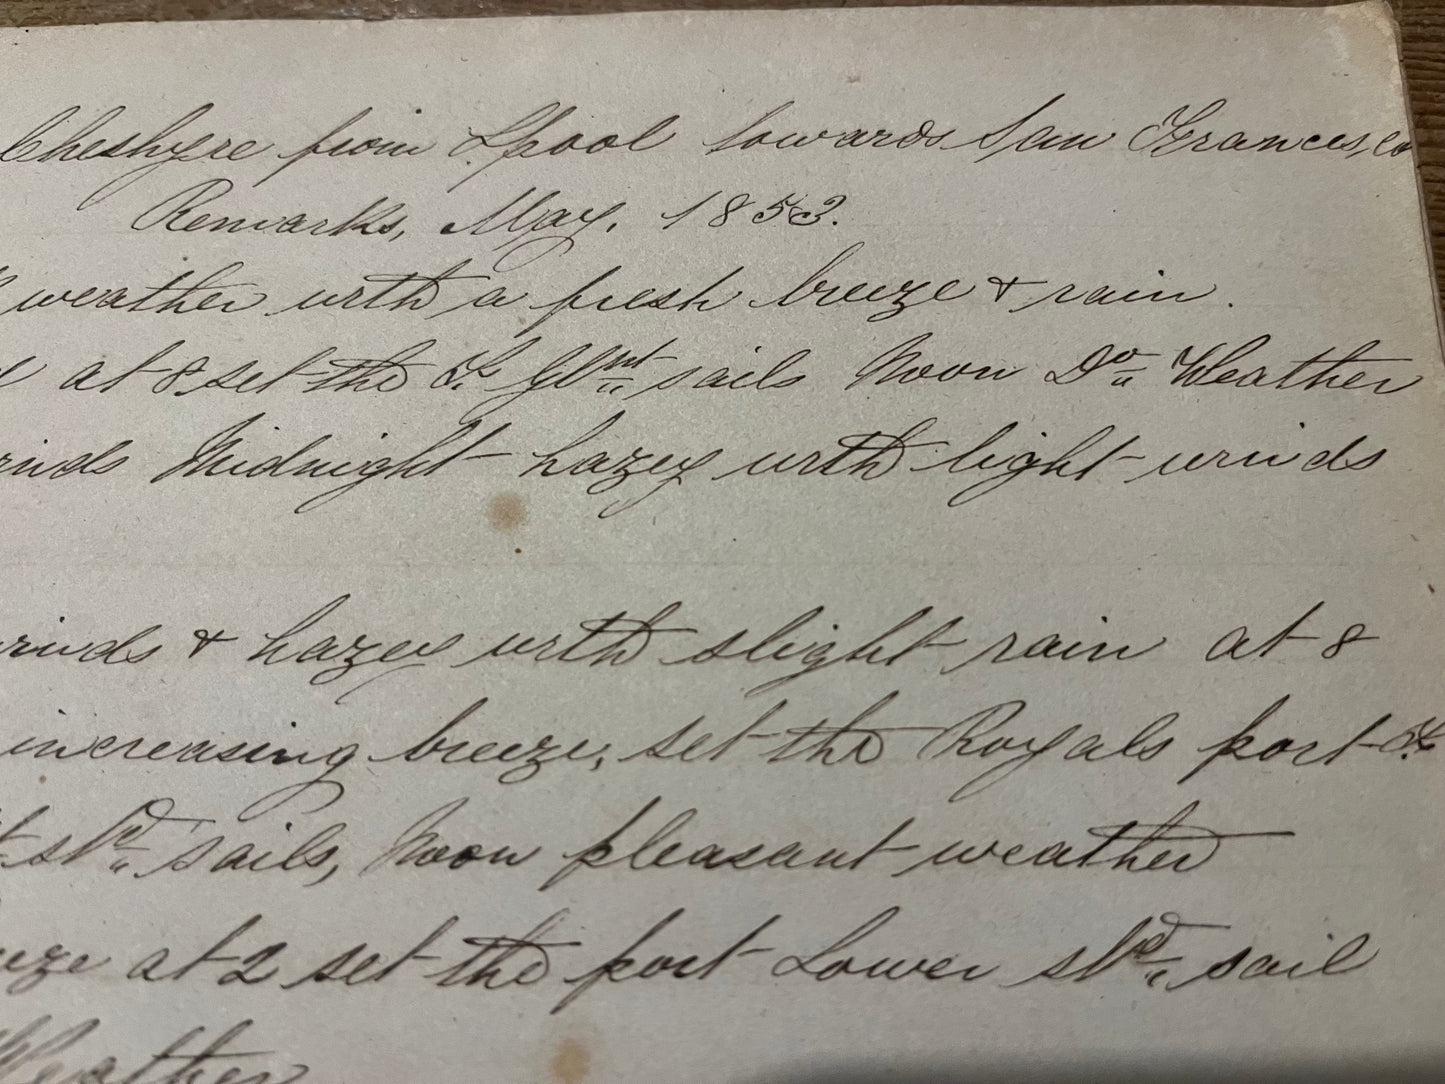 Cheshyre from Lpool towards San Francisco
Remarks, May, 1853.
weather with a fresh breeze & rain.
at 8 set the T. Gllnt sails Noon Do Weather
Midnight hazey with light winds
winds & hazey with slight rain at 8
increasing breeze, set the Royals port
sails, Noon pleasant weather
at 2 set the port Lower sail
Weather